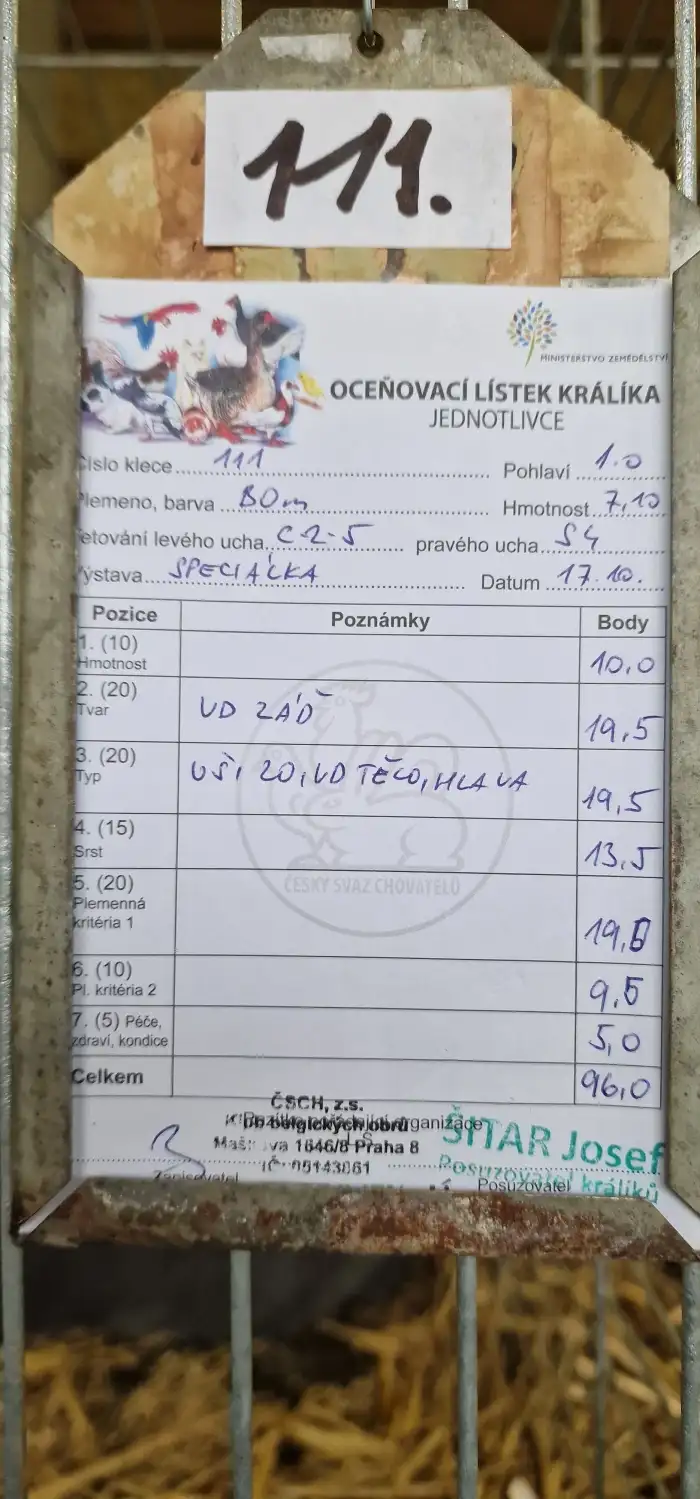 111.
MINISTERSTVO ZEMĚDĚLSTVÍ
OCEŇOVACÍ LÍSTEK KRÁLÍKA
JEDNOTLIVCE
Číslo klece 111 Pohlaví 1.0
Plemeno, barva BOm Hmotnost 7,10
Tetování levého ucha C 2-5 pravého ucha S4
Výstava SPECIÁLKA Datum 17.10.
Pozice Poznámky Body
1. (10) Hmotnost 10,0
2. (20) Tvar VD ZÁĎ 19,5
3. (20) Typ UŠI 20, VD TĚLO, HLAVA 19,5
4. (15) Srst 13,5
5. (20) Plemenná kritéria 1 19,
6. (10) Pl. kritéria 2 9,5
7. (5) Péče, zdraví, kondice 5,0
Celkem 96,0
ČESKÝ SVAZ CHOVATELŮ
ČSCH, z.s.
belgických obrů
1646/8 Praha 8
IČ: 05143861
Zapisovatel
ŠITAR Josef
Posuzovatel králíků
Posuzovatel